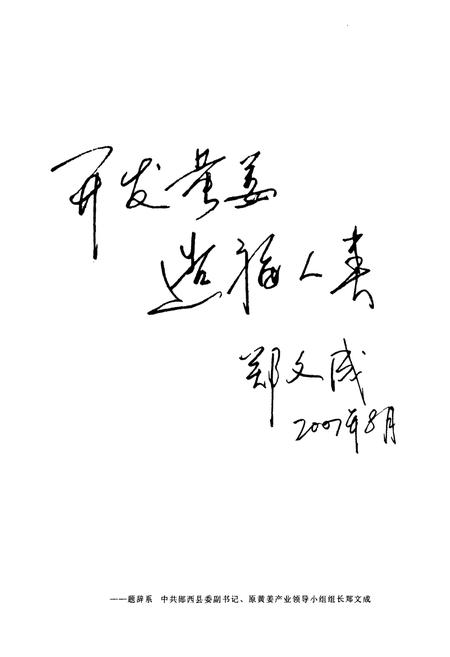 开发黄姜
造福人类
郑文成
2007年8月
——题辞系 中共郧西县委副书记、原黄姜产业领导小组组长郑文成